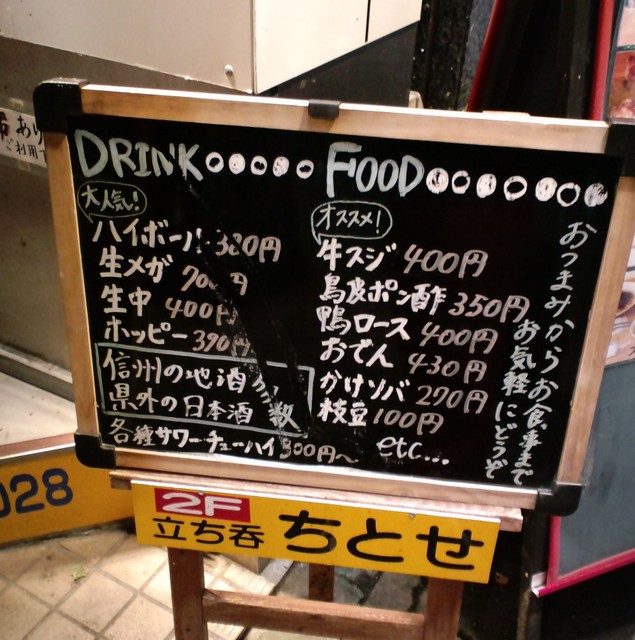 DRINK
大人気!
ハイボール 380円
生メガ 700円
生中 400円
ホッピー 390円
信州の地酒
県外の日本酒 多数
各種サワーチューハイ 300円〜
FOOD
オススメ!
牛スジ 400円
鳥皮ポン酢 350円
鴨ロース 400円
おでん 430円
かけソバ 270円
枝豆 100円
etc...
おつまみからお食事まで
お気軽にどうぞ
2F
立ち呑 ちとせ
028
ご利用